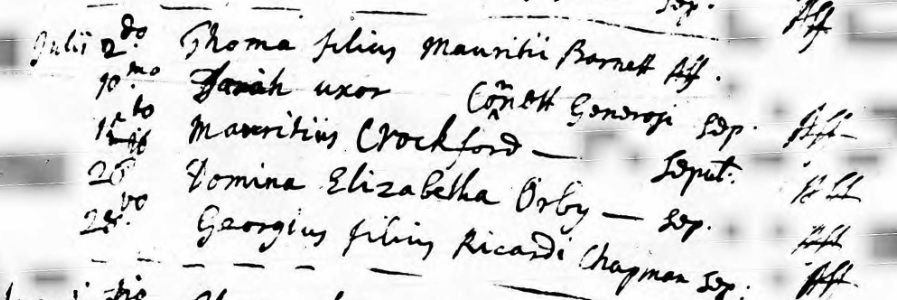 Sep. Aff
Julii 2do Thoma filius Mauritii Barnett Aff.
10mo Sarah uxor Generosi Sep. Aff
Mauritius Crockford — Sepult. Aff
26 Domina Elizabetha Orby — Sep. Aff
28vo Georgius filius Ricardi Chapman Sep. Aff